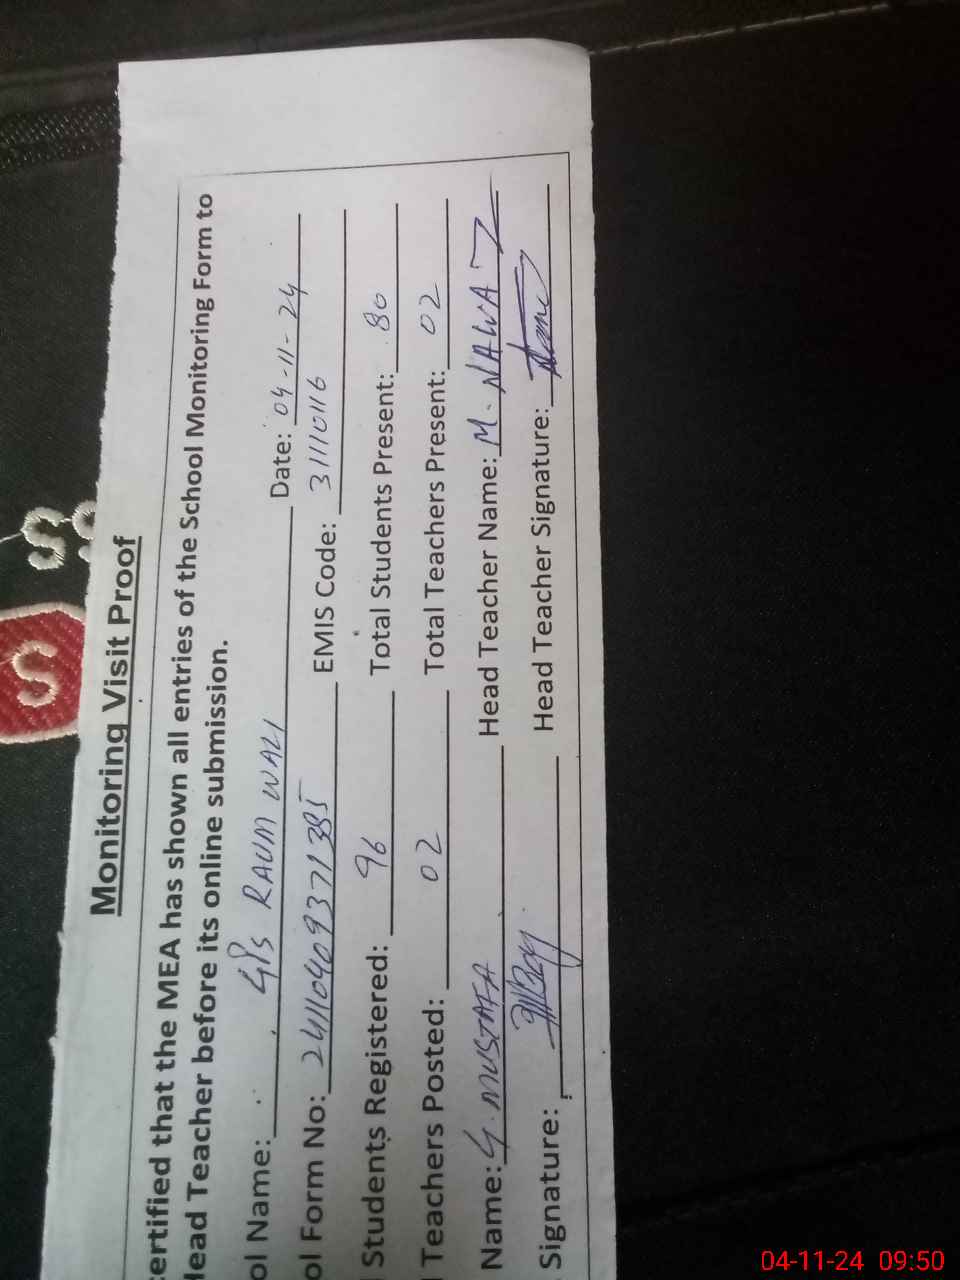 Monitoring Visit Proof
ertified that the MEA has shown all entries of the School Monitoring Form to
Head Teacher before its online submission.
ol Name: GPS RAUM WALI Date: 04-11-24
ol Form No: 24110409371385 EMIS Code: 31110116
Students Registered: 96 Total Students Present: 80
Teachers Posted: 02 Total Teachers Present: 02
Name: G. MUSTAFA Head Teacher Name: M. NAWAZ
Signature: Head Teacher Signature:
S
S
04-11-24 09:50